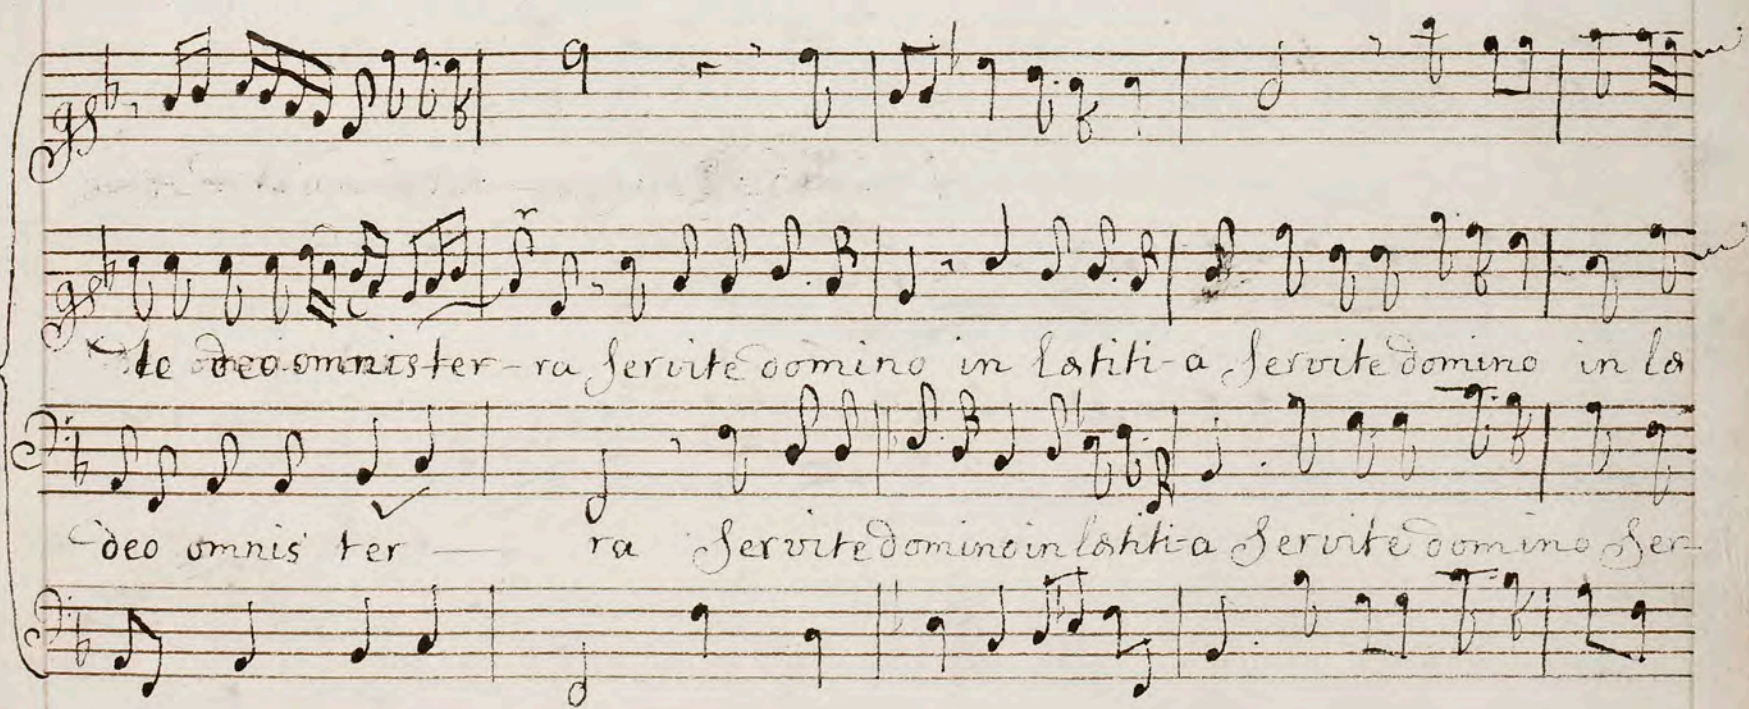 te deo omnis ter-ra servite domino in lætiti-a servite domino in læ
deo omnis ter — ra servite domino in lætiti-a servite domino ser-